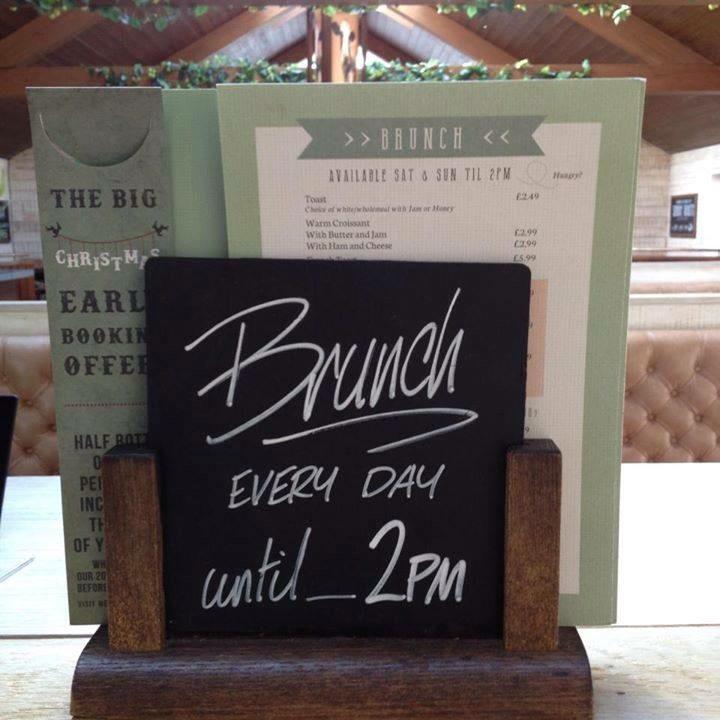 THE BIG
CHRISTM
EARL
BOOKIN
OFFE
HALF BOT
PE
INC
TH
OF Y
WH
OUR 20
BEFORE
VISIT
>> BRUNCH <<
AVAILABLE SAT & SUN TIL 2PM
Hungry?
Toast £2.49
Choice of white/wholemeal with Jam or Honey
Warm Croissant
With Butter and Jam £2.99
With Ham and Cheese £2.99
£5.99
Brunch
EVERY DAY
until_2PM